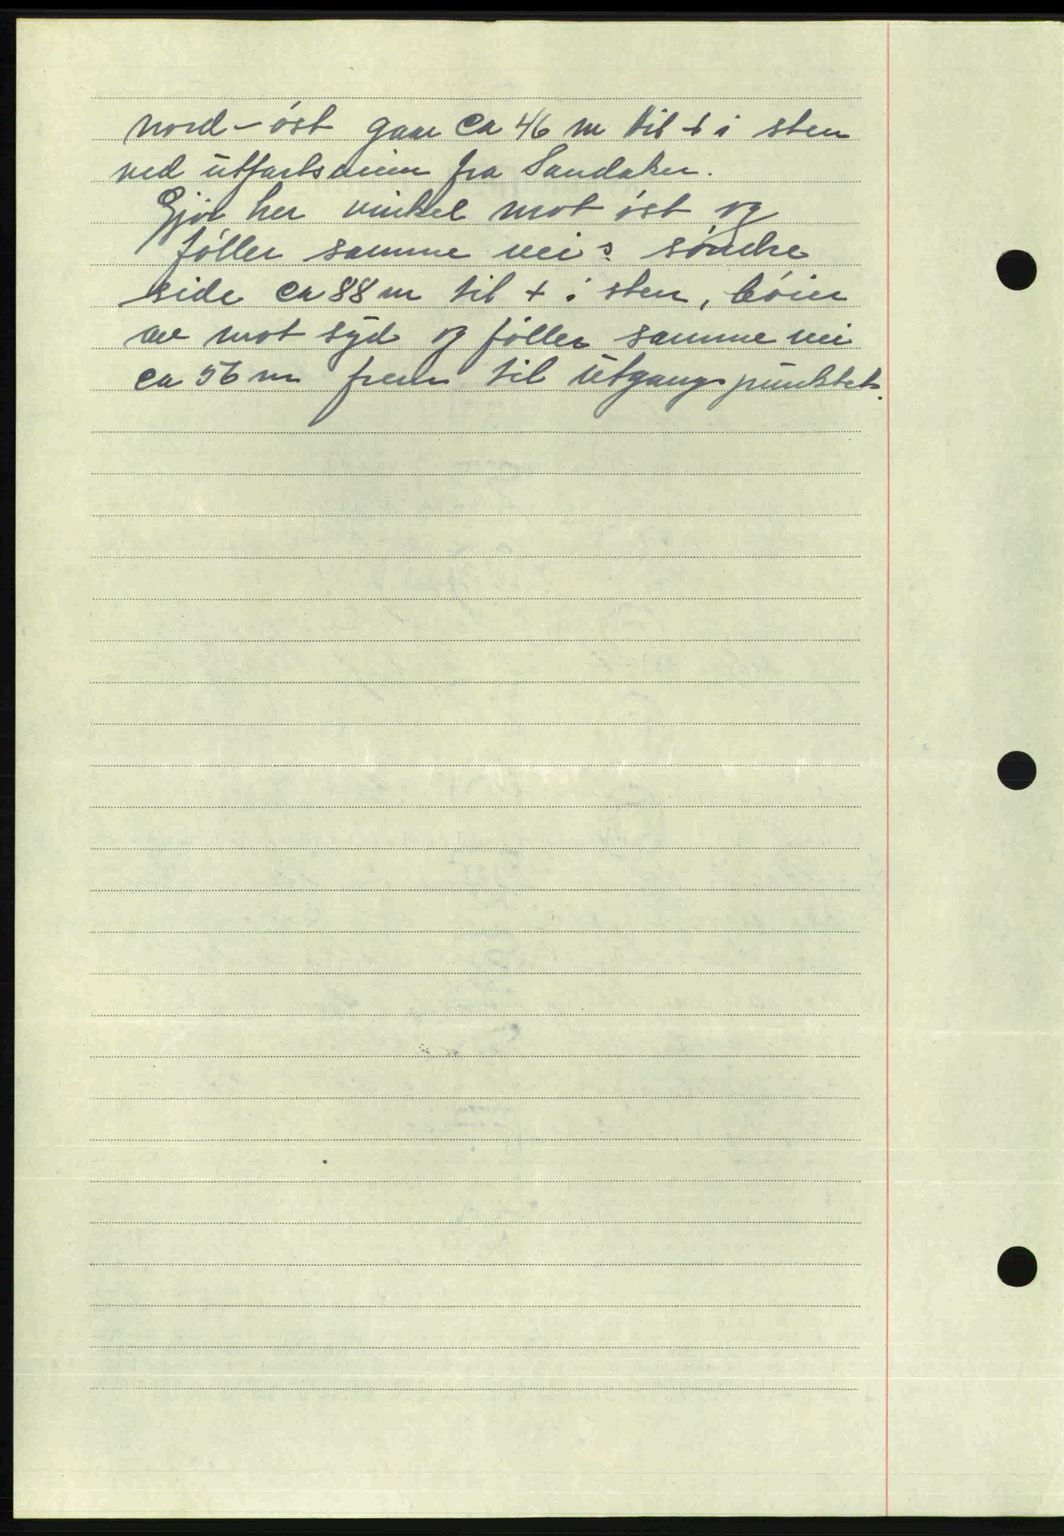 nord-öst gaar ca 46 m til + i sten
ved utfartsveien fra Sandaker.
Gjör her vinkel mot öst og
föller samme vei's söndre
side ca 88 m til + i sten, böier
av mot syd og föller samme vei
ca 56 m frem til utgangspunktet.